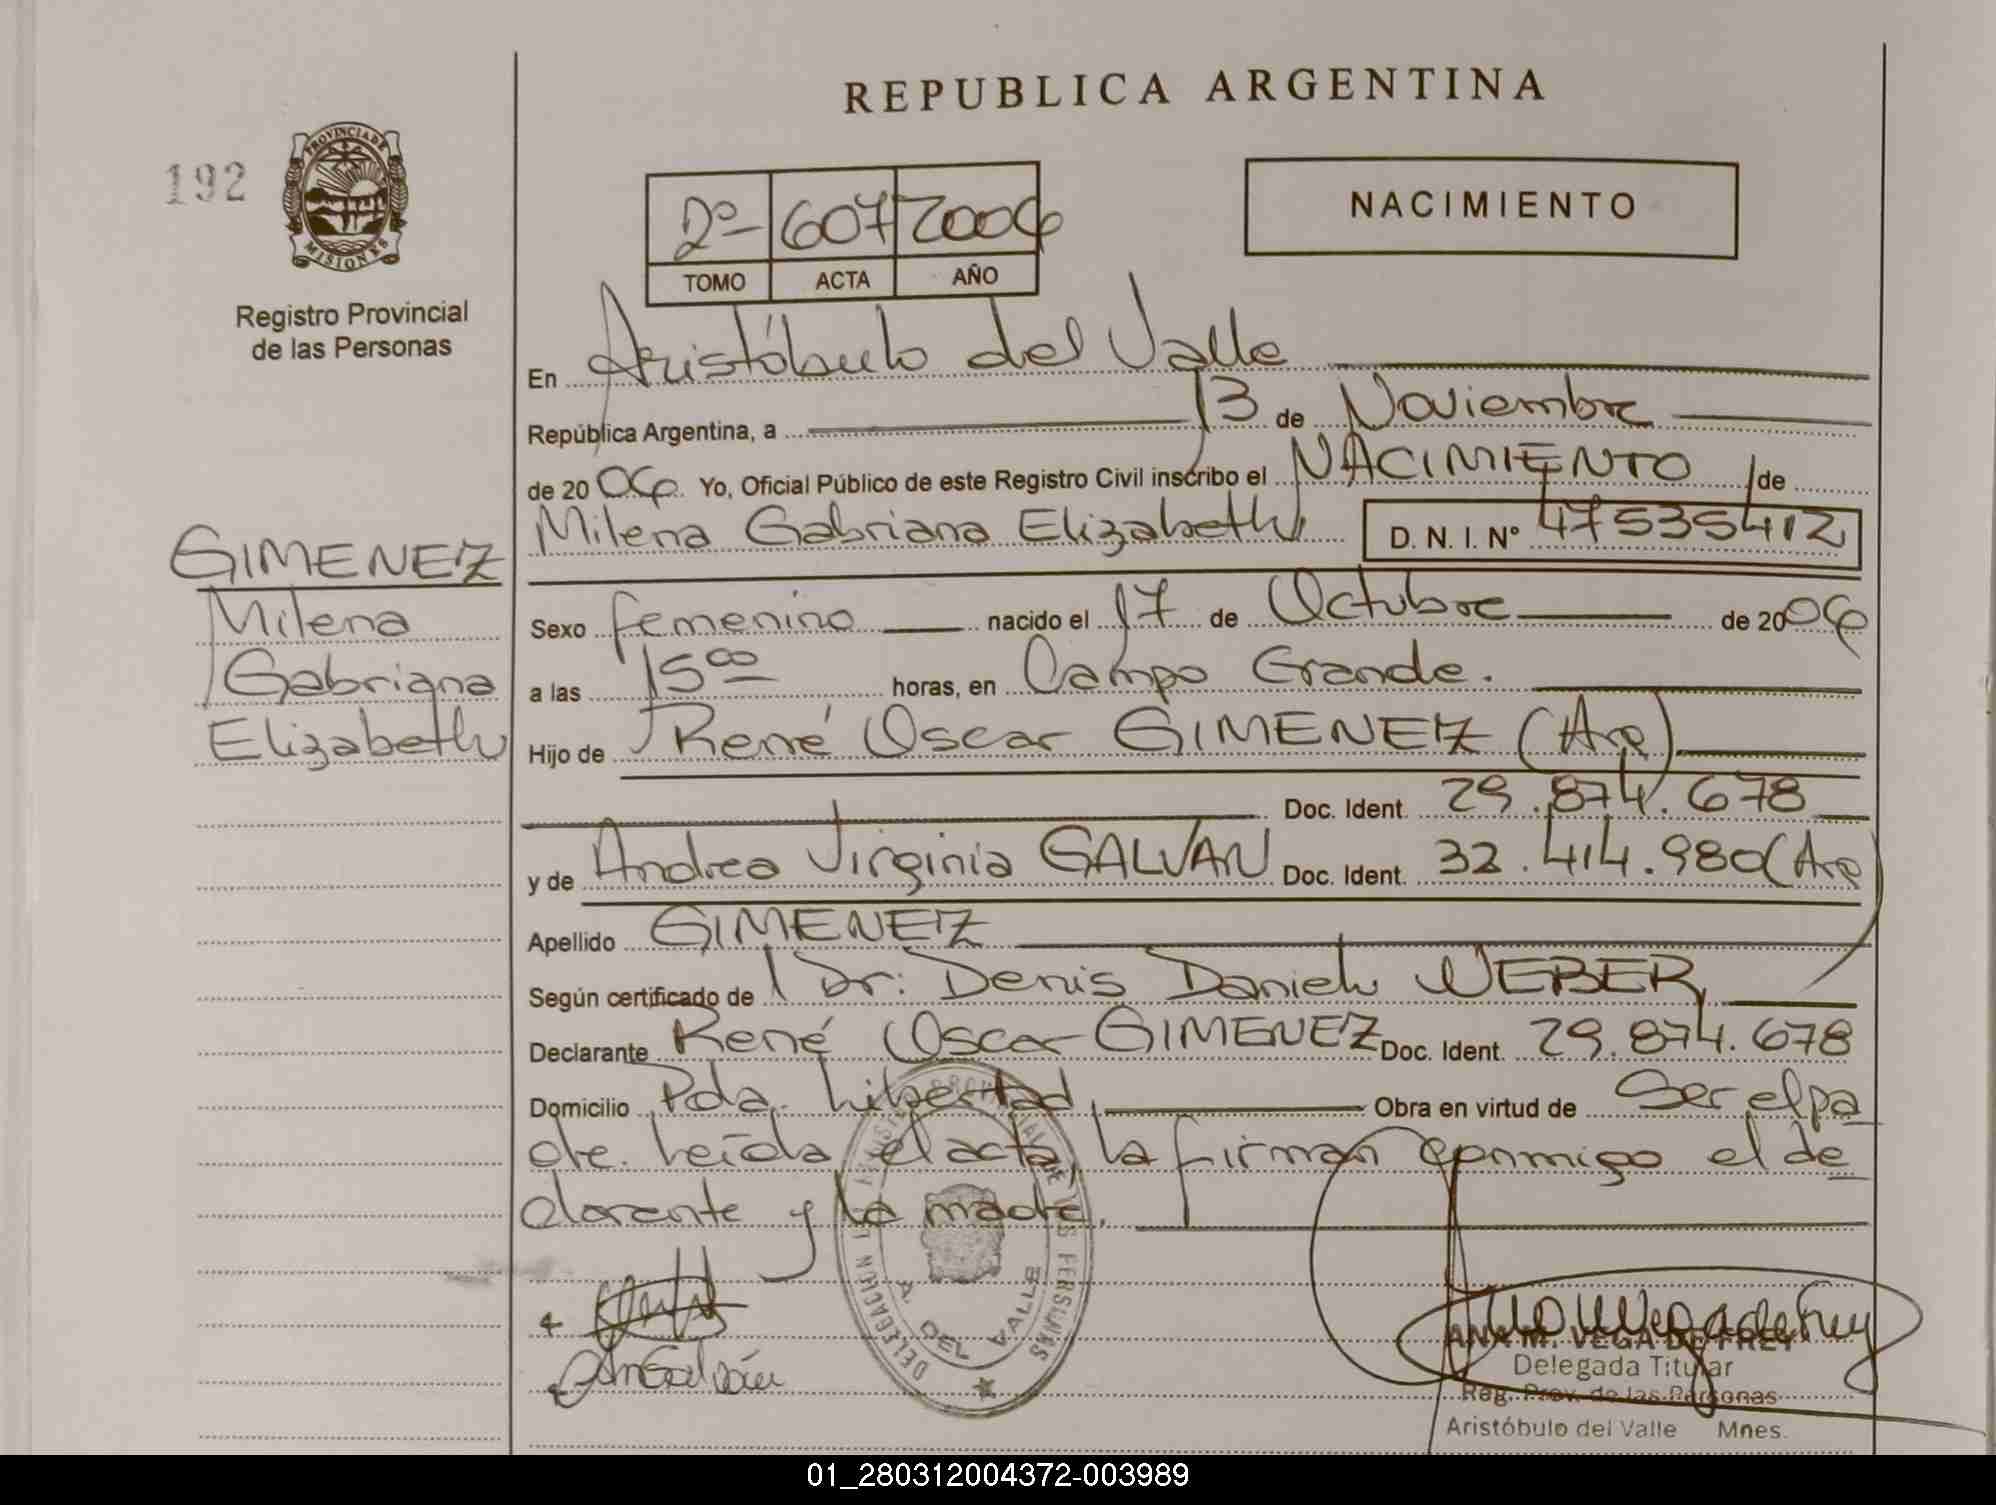 REPUBLICA ARGENTINA
192
PROVINCIA DE
MISIONES
Registro Provincial
de las Personas
2º 607 2006
TOMO ACTA AÑO
NACIMIENTO
En Aristóbulo del Valle
República Argentina, a 13 de Noviembre
de 20 06 Yo, Oficial Público de este Registro Civil inscribo el NACIMIENTO de
Milena Gabriana Elizabeth D. N. I. Nº 47535412
GIMENEZ
Milena
Gabriana
Elizabeth
Sexo femenino nacido el 17 de Octubre de 2006
a las 15⁰⁰ horas, en Campo Grande.
Hijo de René Oscar GIMENEZ (Arg)
Doc. Ident. 29.874.678
y de Andrea Virginia GALVAN Doc. Ident. 32.414.980 (Arg)
Apellido GIMENEZ
Según certificado de Dr: Denis Daniel WEBER
Declarante René Oscar GIMENEZ Doc. Ident. 29.874.678
Domicilio Pda. Libertad Obra en virtud de Ser el pa
dre. Leída el acta, la firman conmigo el de
clarante y la madre.
DELEGACION REGISTRO PROVINCIAL DE LAS PERSONAS
A. DEL VALLE
ANA M. VEGA DE FREY
Delegada Titular
Reg. Prov. de las Personas
Aristóbulo del Valle Mnes.
01_280312004372-003989